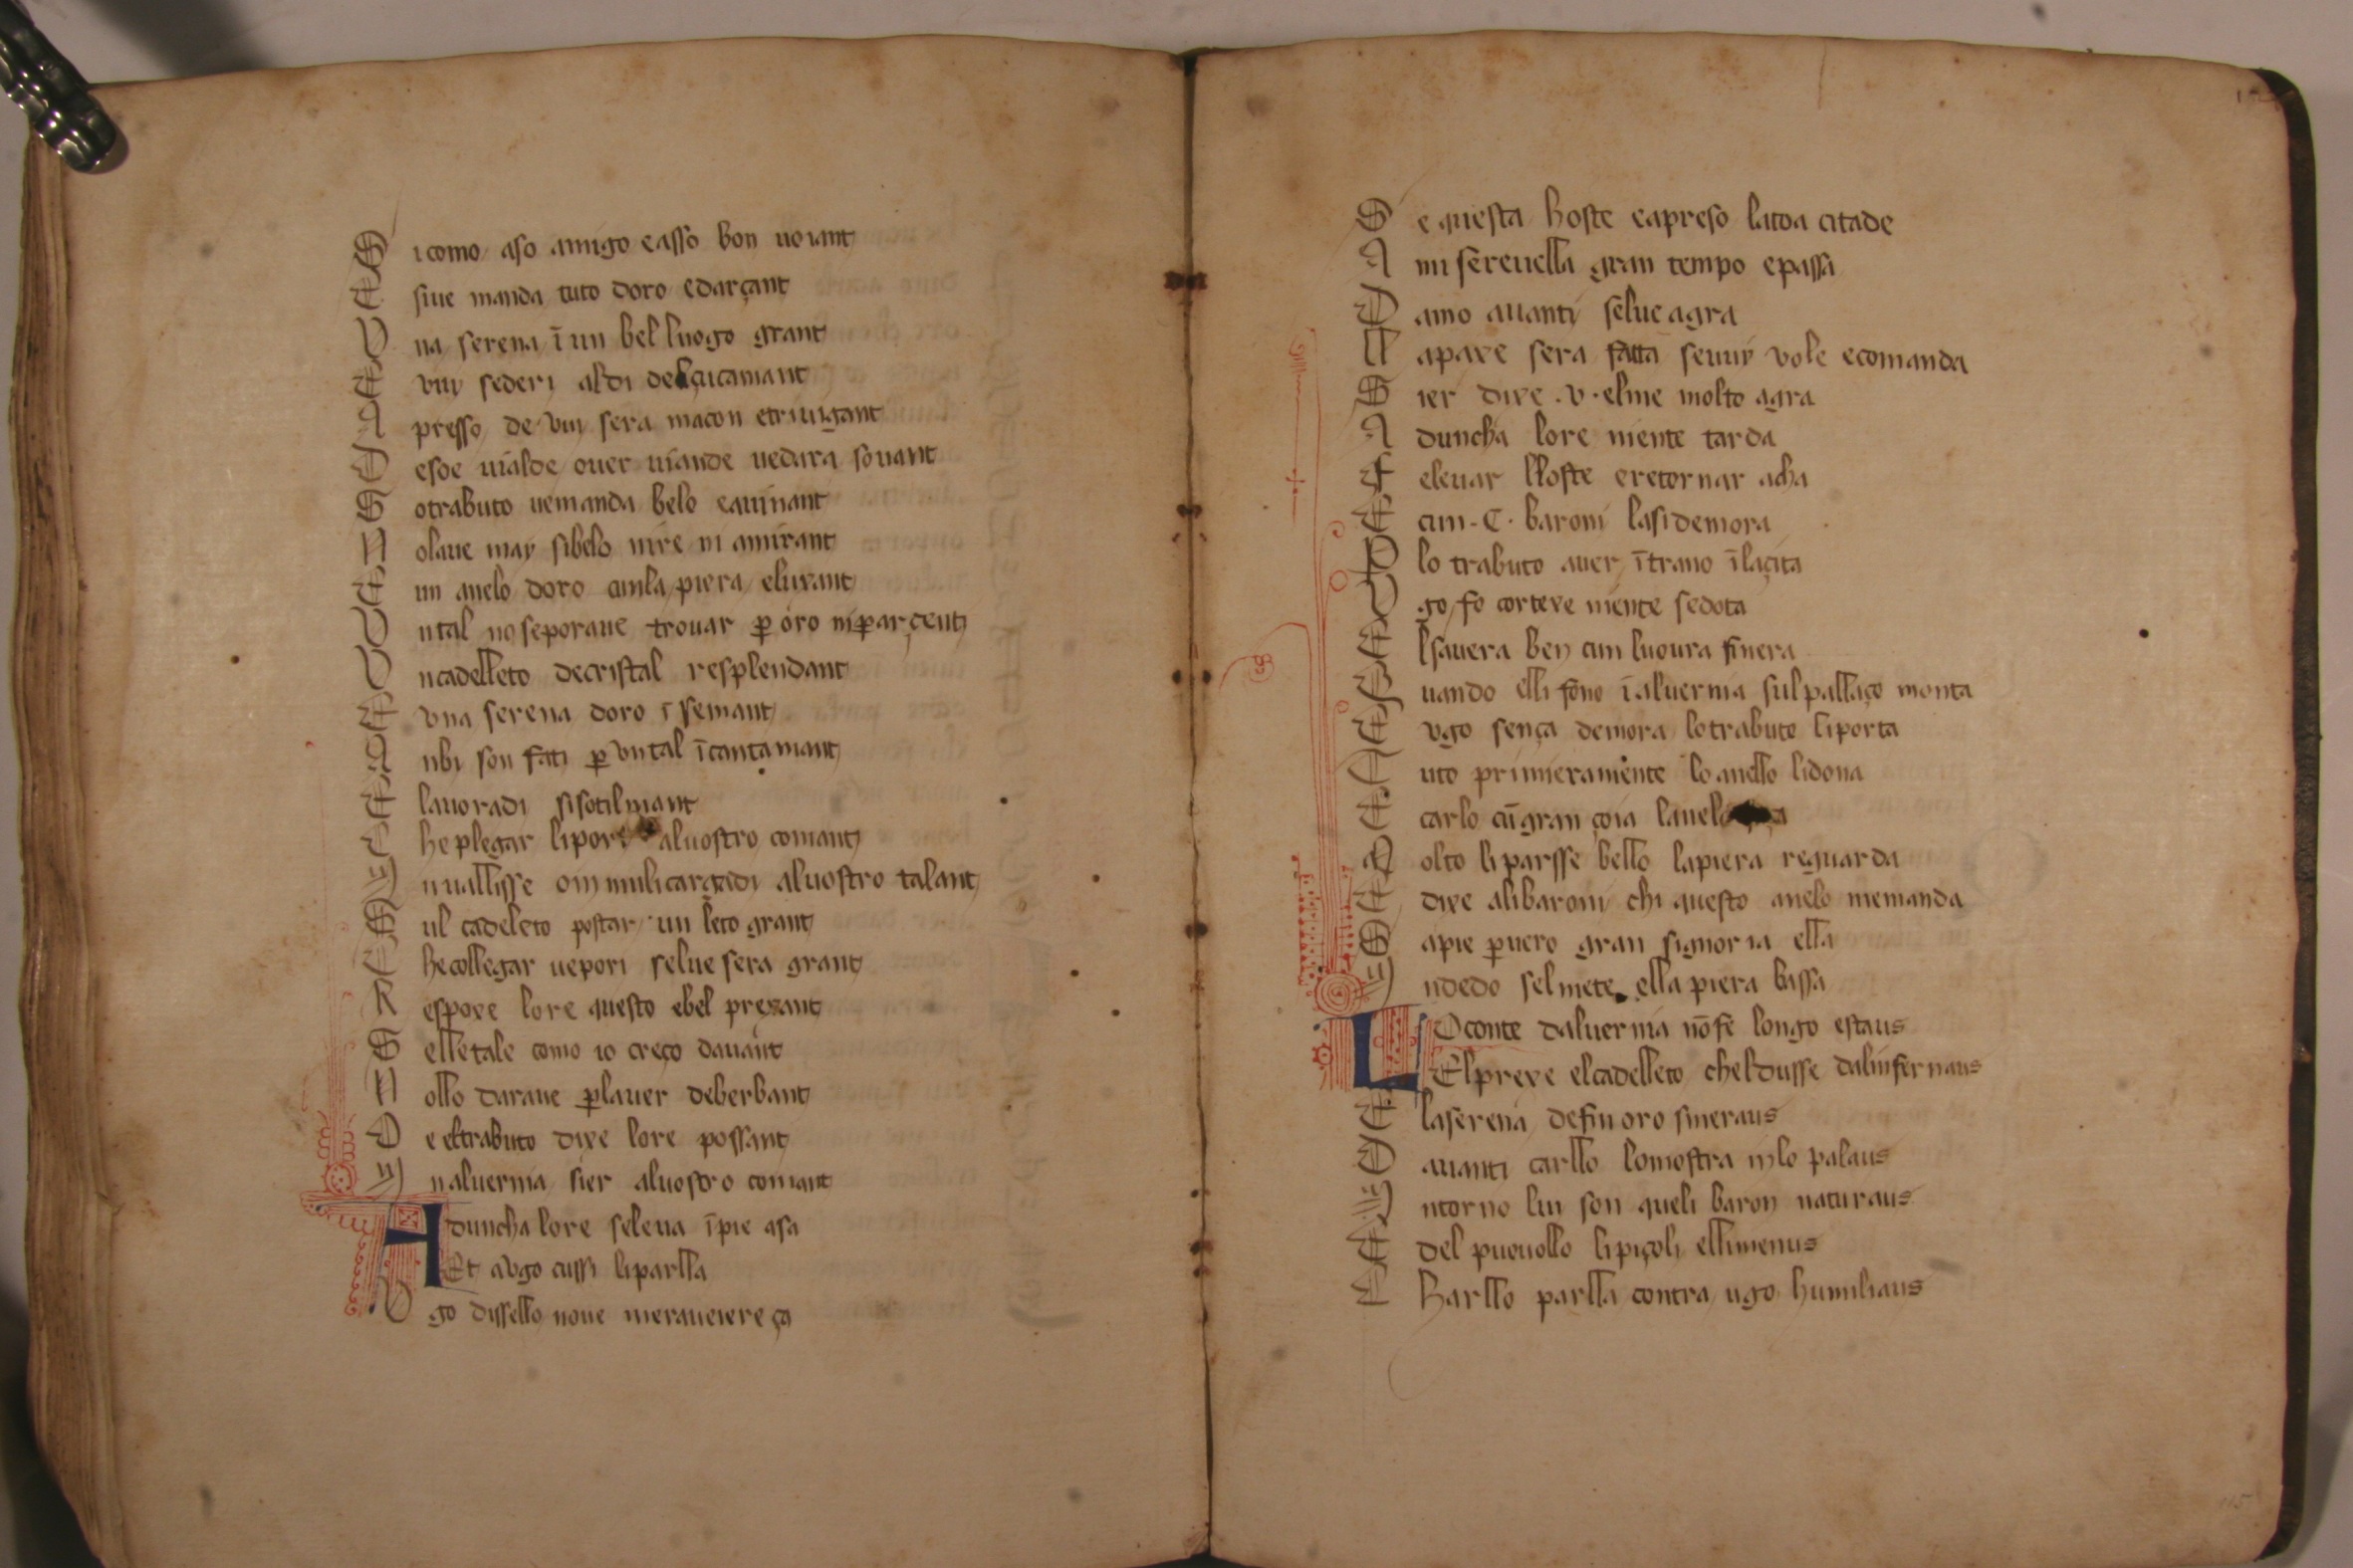 S icomo aso amigo e asso bon voiant
E sive manda tuto doro e darçant
U na serena ĩ un bel luogo grant
E vuy sederi al di del çucamant
A presso de vuy sera macon e trivigant
D e soe vialde over viande vedara sovant
S o trabuto ve manda belo e avinant
N olave may sibelo nire ni amirant
E un anelo doro cun la piera eluxant
U n tal no se porave trovar ꝑ oro ni ꝑ arçent
U n cadelleto de cristal resplendant
E una serena doro ĩ semant
A nbi son fati ꝑ un tal ĩcantamant
E lavoradi si sotilmant
C he plegar li pore al vostro comant
I n vallisse on muli cargadi al vostro talant
S ul cadeleto postar un leto grant
C he collegar ve pori selve sera grant
R espoxe lore questo e bel prexant
S elle tale como io creço davant
N ollo darave ꝑ laver de berbant
O e el trabuto dixe lore possant
I n alvernia sier al vostro comant
A duncha lore se leva ĩ pie asa
Et a Ugo cussi li parlla
U go dissello nove meraveiere ça
S e questa hoste e apreso la toa citade
A mi serevella gran tempo e passa
D amo avanti selve agra
La paxe sera fatta se vuy vole e comanda
S ier dixe .V. el me molto agra
A duncha lore niente tarda
F e levar lloste e retornar acha
E cun .C. baroni la si demora
P lo trabuto aver ĩtrano ĩ la çita
U go fo cortexe niente se dota
E l savera ben cun luovra finera
Q uando elli fono ĩ alvernia sul pallaço monta
E Ugo sença demora lo trabuto li porta
T uto primieramente lo anello li dona
E carlo cũ gran çoia lanelo
M olto li parsse bello la piera reguarda
E dixe ali baroni chi questo anelo me manda
S apie ꝑ vero gran signoria ella
I n dedo sel mete ella piera bassa
L O conte dalvernia nõ fe longo estaus
El prexe el cadelleto chel dusse dal infernaus
E la serena de fin oro smeraus
D avanti carllo lo mostra in lo palaus
I ntorno lui son queli baron naturaus
E del puovollo li piçoli elli menus
C harllo parlla contra ugo humiliaus
115